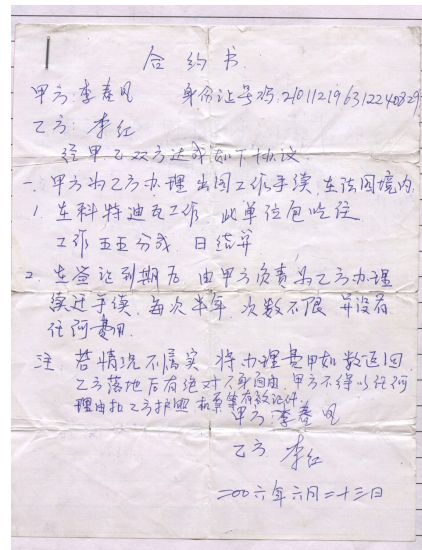 合约书
甲方:李春凤 身份证号码:210112196312240829
乙方:李红
经甲乙双方达成如下协议
一.甲方为乙方办理出国工作手续,在法国境内
1.在科特迪瓦工作,此单位包吃住
工作五五分成,日结算
2.在签证到期后,由甲方负责为乙方办理
续迁手续,每次半年,次数不限,并没有
任何费用.
注.若情况不属实,将办理费用如数返回.
乙方落地后有绝对人身自由,甲方不得以任何
理由扣乙方护照机票等有效证件.
甲方:李春凤
乙方 李红
二00六年六月二十三日